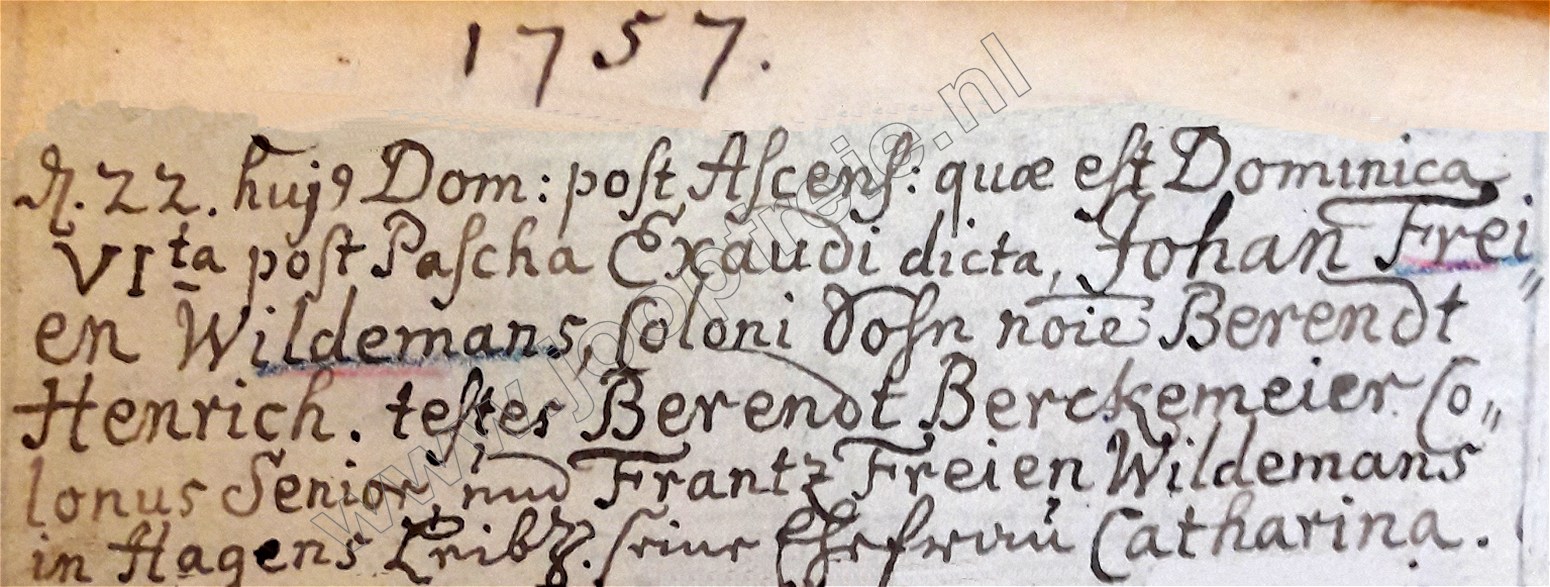 1757.
d. 22. huj9 Dom: post Ascens: quæ est Dominica
VIta post Pascha Exaudi dicta, Johan Frei〃
en Wildemans, Coloni Sohn noie Berendt
Henrich. testes Berendt Berckemeier Co〃
lonus Senior, und Frantz Freien Wildemans
in Hagens Leibz. seine Ehefrau Catharina.
www.jooptreie.nl